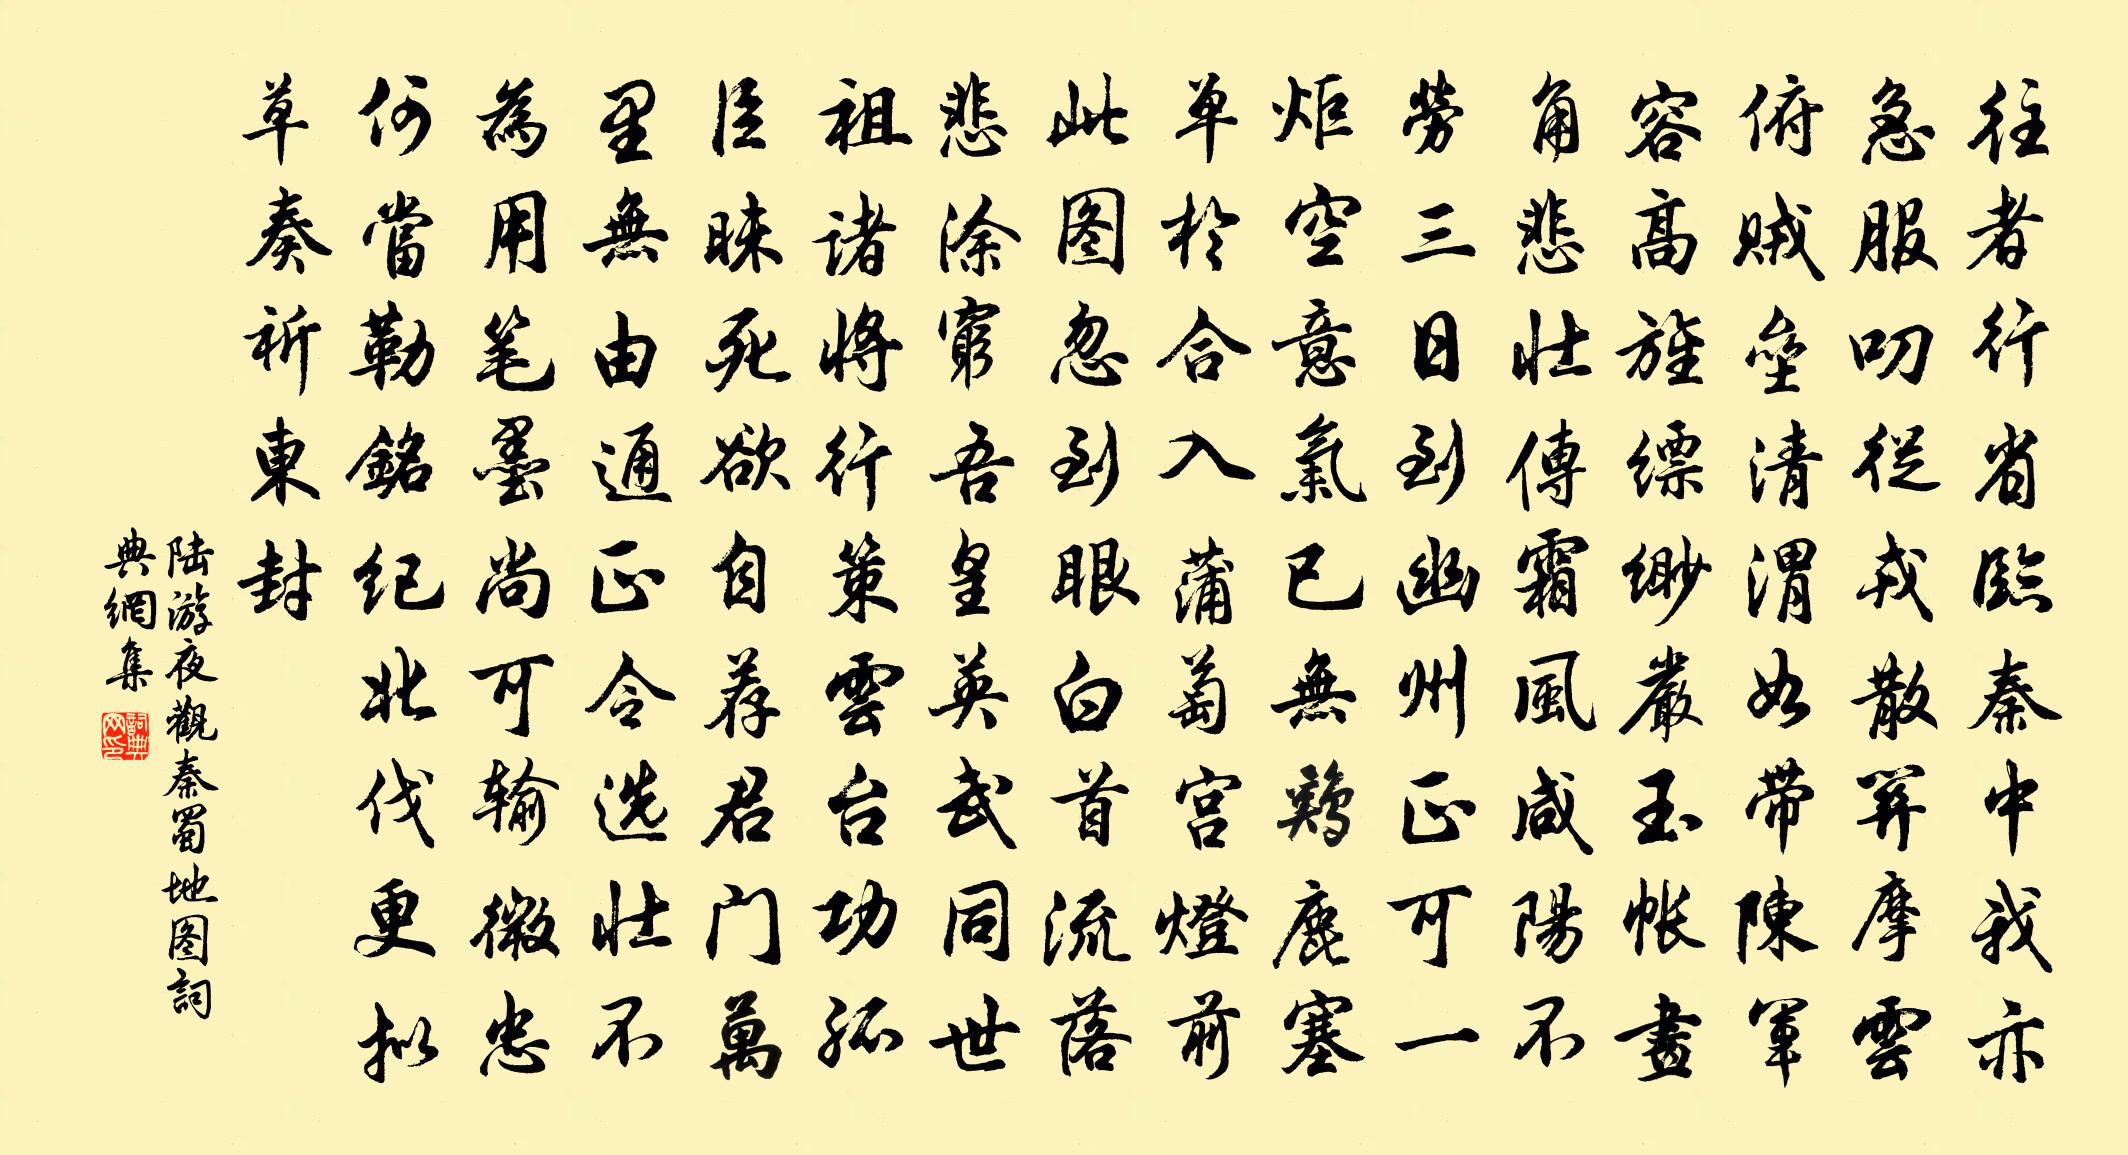 往者行省臨秦中我亦
急服叨從戎散關摩雲
俯賊壘清渭如帶陳軍
容高旌縹緲嚴玉帳畫
角悲壯傳霜風咸陽不
勞三日到幽州正可一
炬空意氣已無鷄鹿塞
单於合入蒲萄宫燈前
此图忽到眼白首流落
悲涂窮吾皇英武同世
祖诸將行策雲台功孤
臣昧死欲自荐君门萬
里無由通正令选壮不
為用笔墨尚可输微忠
何當勒銘纪北伐更拟
草奏祈東封
陆游夜觀秦蜀地图詞
典網集
詞典网印